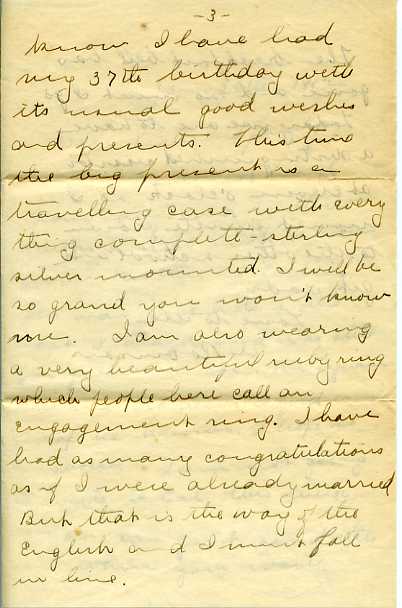 -3-
know I have had
my 37th birthday with
its usual good wishes
and presents. This time
the big present is a
travelling case with every
thing complete - sterling
silver mounted. I will be
so grand you won't know
me. I am also wearing
a very beautiful ruby ring
which people here call an
engagement ring. I have
had as many congratulations
as if I were already married
But that is the way of the
English and I must fall
in line.